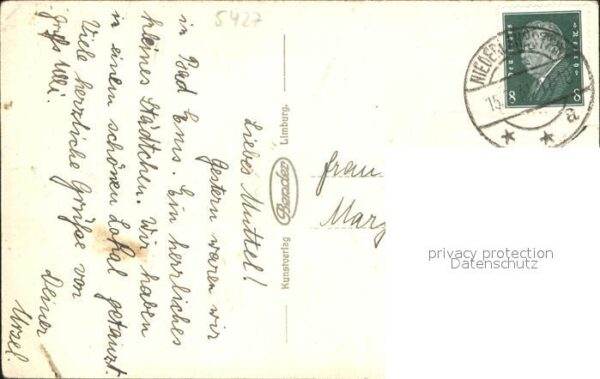 5427
Liebes Muttel!
Gestern waren wir
in Bad Ems. Ein herrliches
kleines Städtchen. Wir haben
in einem schönen Lokal getanzt.
Viele herzliche Grüße von
Deiner
Urzel.
Kunstverlag Bender Limburg.
Frau
Marg
NIEDER
15.
a
8 8
privacy protection
Datenschutz